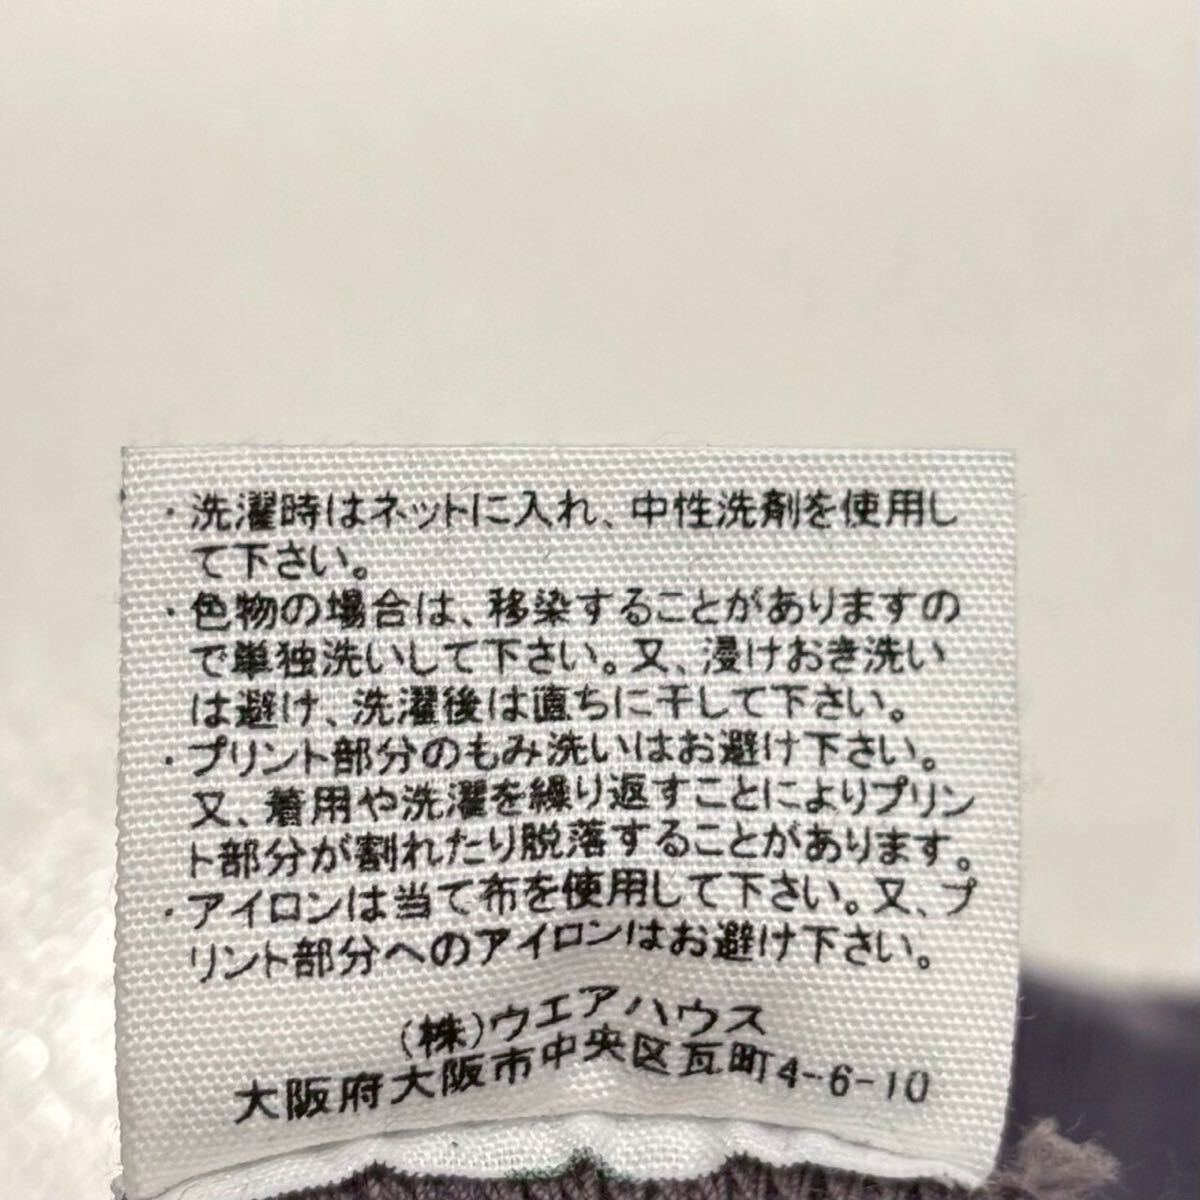 ・洗濯時はネットに入れ、中性洗剤を使用し
て下さい。
・色物の場合は、移染することがありますの
で単独洗いして下さい。又、浸けおき洗い
は避け、洗濯後は直ちに干して下さい。
・プリント部分のもみ洗いはお避け下さい。
又、着用や洗濯を繰り返すことによりプリン
ト部分が割れたり脱落することがあります。
・アイロンは当て布を使用して下さい。又、プ
リント部分へのアイロンはお避け下さい。
(株)ウエアハウス
大阪府大阪市中央区瓦町4-6-10